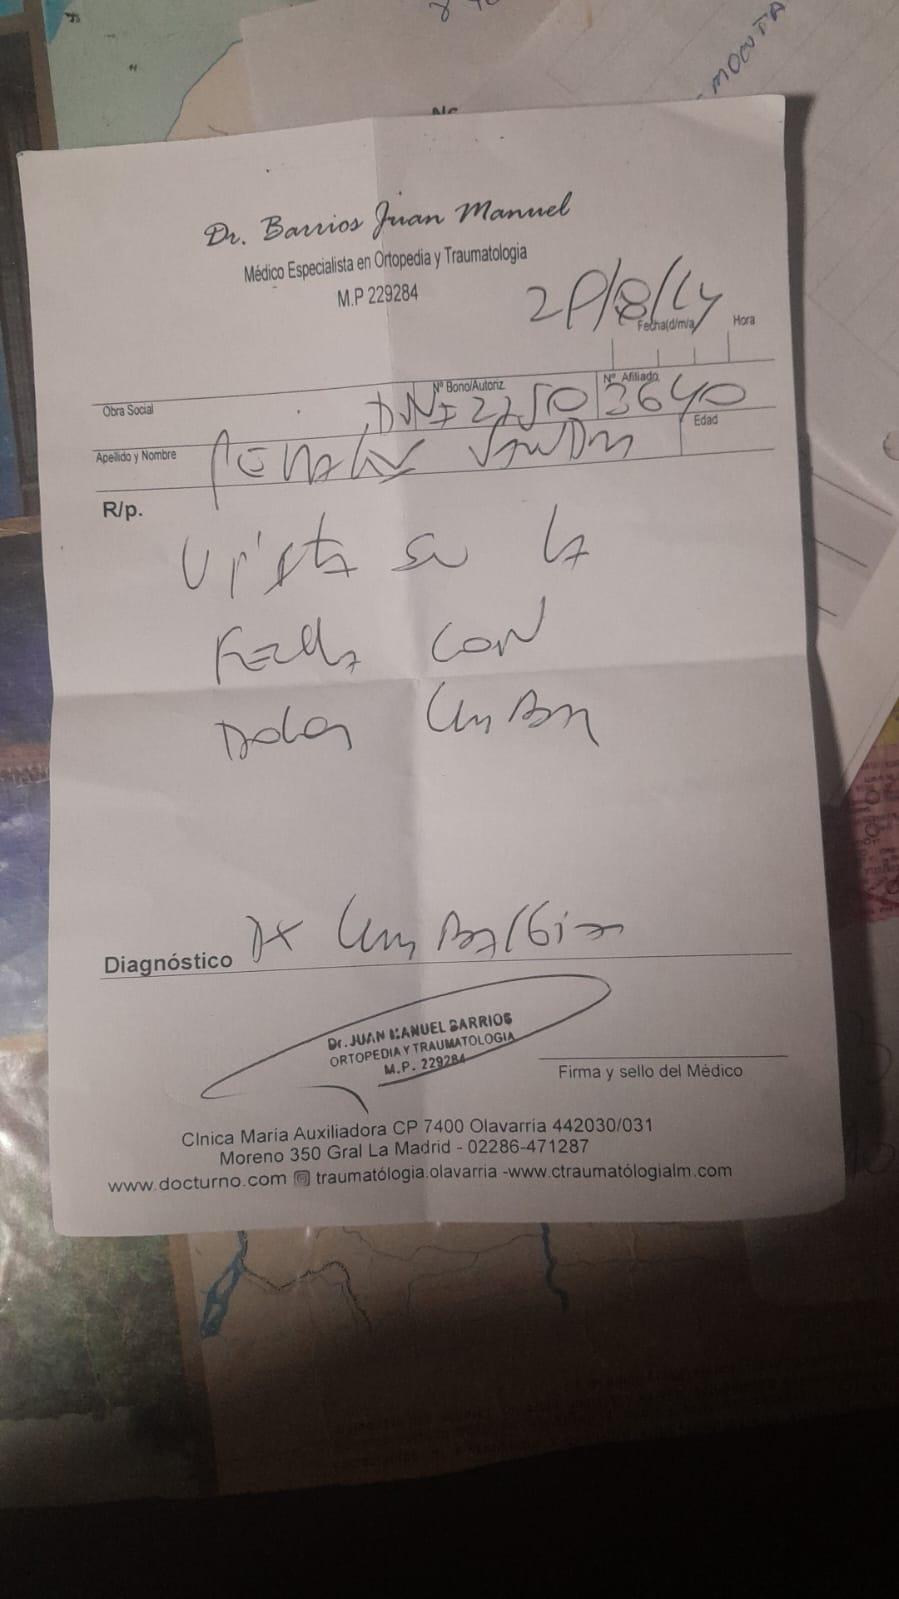 MOCUTA
Dr. Barrios Juan Manuel
Médico Especialista en Ortopedia y Traumatologia
M.P 229284
Fecha(d/m/a) Hora
Nº Bono/Autoriz. Nº Afiliado
Obra Social DNI
Apellido y Nombre Edad
R/p.
Vista en la
Fecha con
Dolor Lumbar
Diagnóstico DX Lumbalgia
Dr. JUAN MANUEL BARRIOS
ORTOPEDIA Y TRAUMATOLOGIA
M.P. 229284
Firma y sello del Médico
Clnica María Auxiliadora CP 7400 Olavarría 442030/031
Moreno 350 Gral La Madrid - 02286-471287
www.docturno.com traumatólogia.olavarria -www.ctraumatólogialm.com